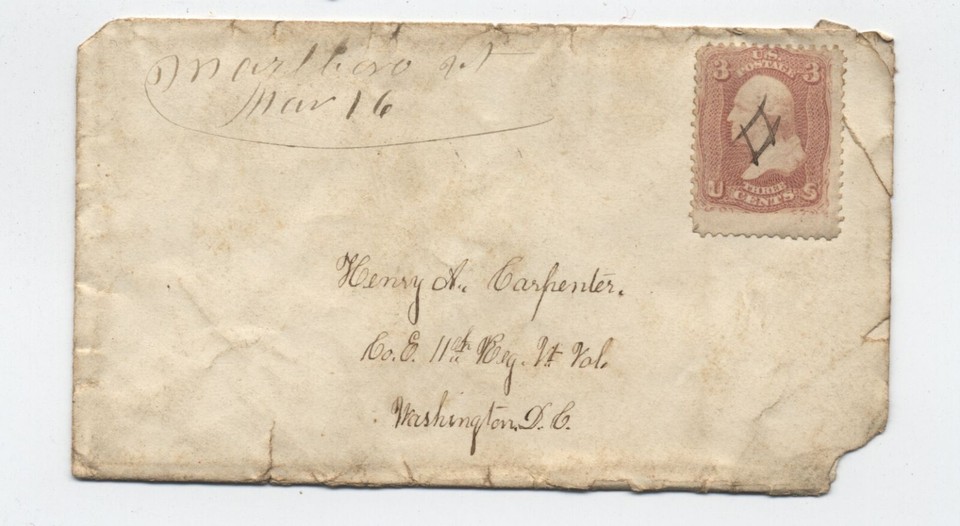 Marlboro Vt
Mar 16
U.S.
POSTAGE
3 3
U THREE S
CENTS
Henry A. Carpenter.
Co. E. 11th Reg. Vt Vol.
Washington. D. C.